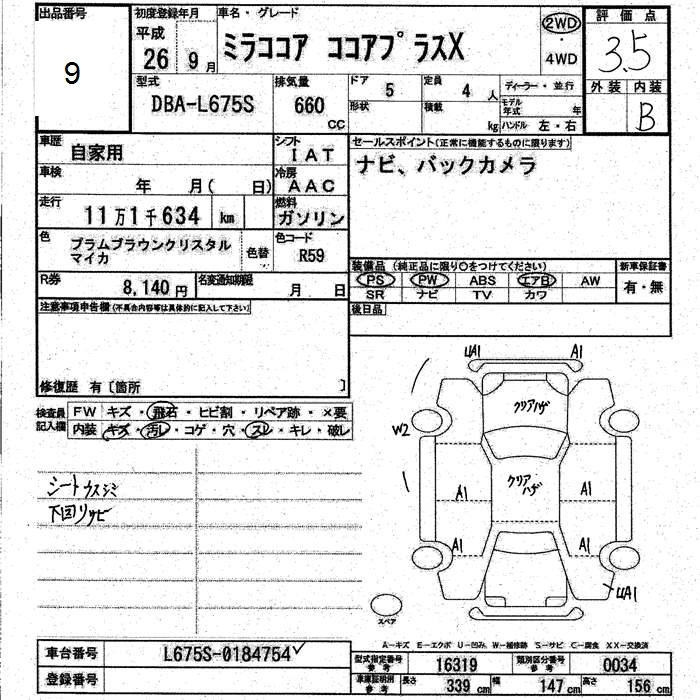 出品番号 初度登録年月 車名・グレード 評価点
9
平成 26 9月 ミラココア ココアプラスX 2WD・4WD 3.5
型式 排気量 ドア 5 定員 4人 ディーラー・並行 外装 内装
DBA-L675S 660 CC 形状 積載 kg モデル年式 年 ハンドル 左・右 B
車歴 自家用 シフト IAT セールスポイント(正常に機能するものに限ります)
車検 年 月( 日) 冷房 AAC ナビ、バックカメラ
走行 11万1千634 km 燃料 ガソリン
色 プラムブラウンクリスタルマイカ 色替 色コード R59
装備品 (純正品に限り○をつけてください) 新車保証書
R券 8,140円 名変通知期限 月 日 PS PW ABS エアB AW 有・無
SR ナビ TV カワ
注意事項申告欄(不具合内容等は具体的に記入して下さい) 後日品
修復歴 有〔箇所 〕
検査員記入欄 FW キズ・飛石・ヒビ割・リペア跡・×要
内装 キズ・汚レ・コゲ・穴・スレ・キレ・破レ
シートウスシミ
下回リサビ
UA1 A1
クリアハゲ
W2
クリアハゲ
A1 A1
A1 A1
UA1
スペア
A-キズ E-エクボ U-凹み W-補修跡 S-サビ C-腐食 XX-交換済
車台番号 L675S-0184754 型式指定番号 参考 16319 類別区分番号 参考 0034
登録番号 車庫証明用 参考 長さ 339cm 幅 147cm 高さ 156cm